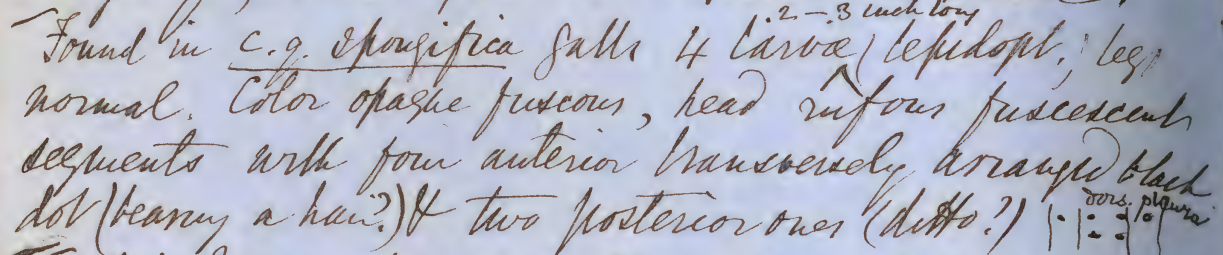 .2 – .3 inch long
Found in c. q. spongifica galls 4 larvæ (lepidopt.; legs
normal. Color opaque fuscous, head rufous fuscescent
segments with four anterior transversely arranged black
dot (bearing a hair?) & two posterior ones (ditto?)
dors. pleura